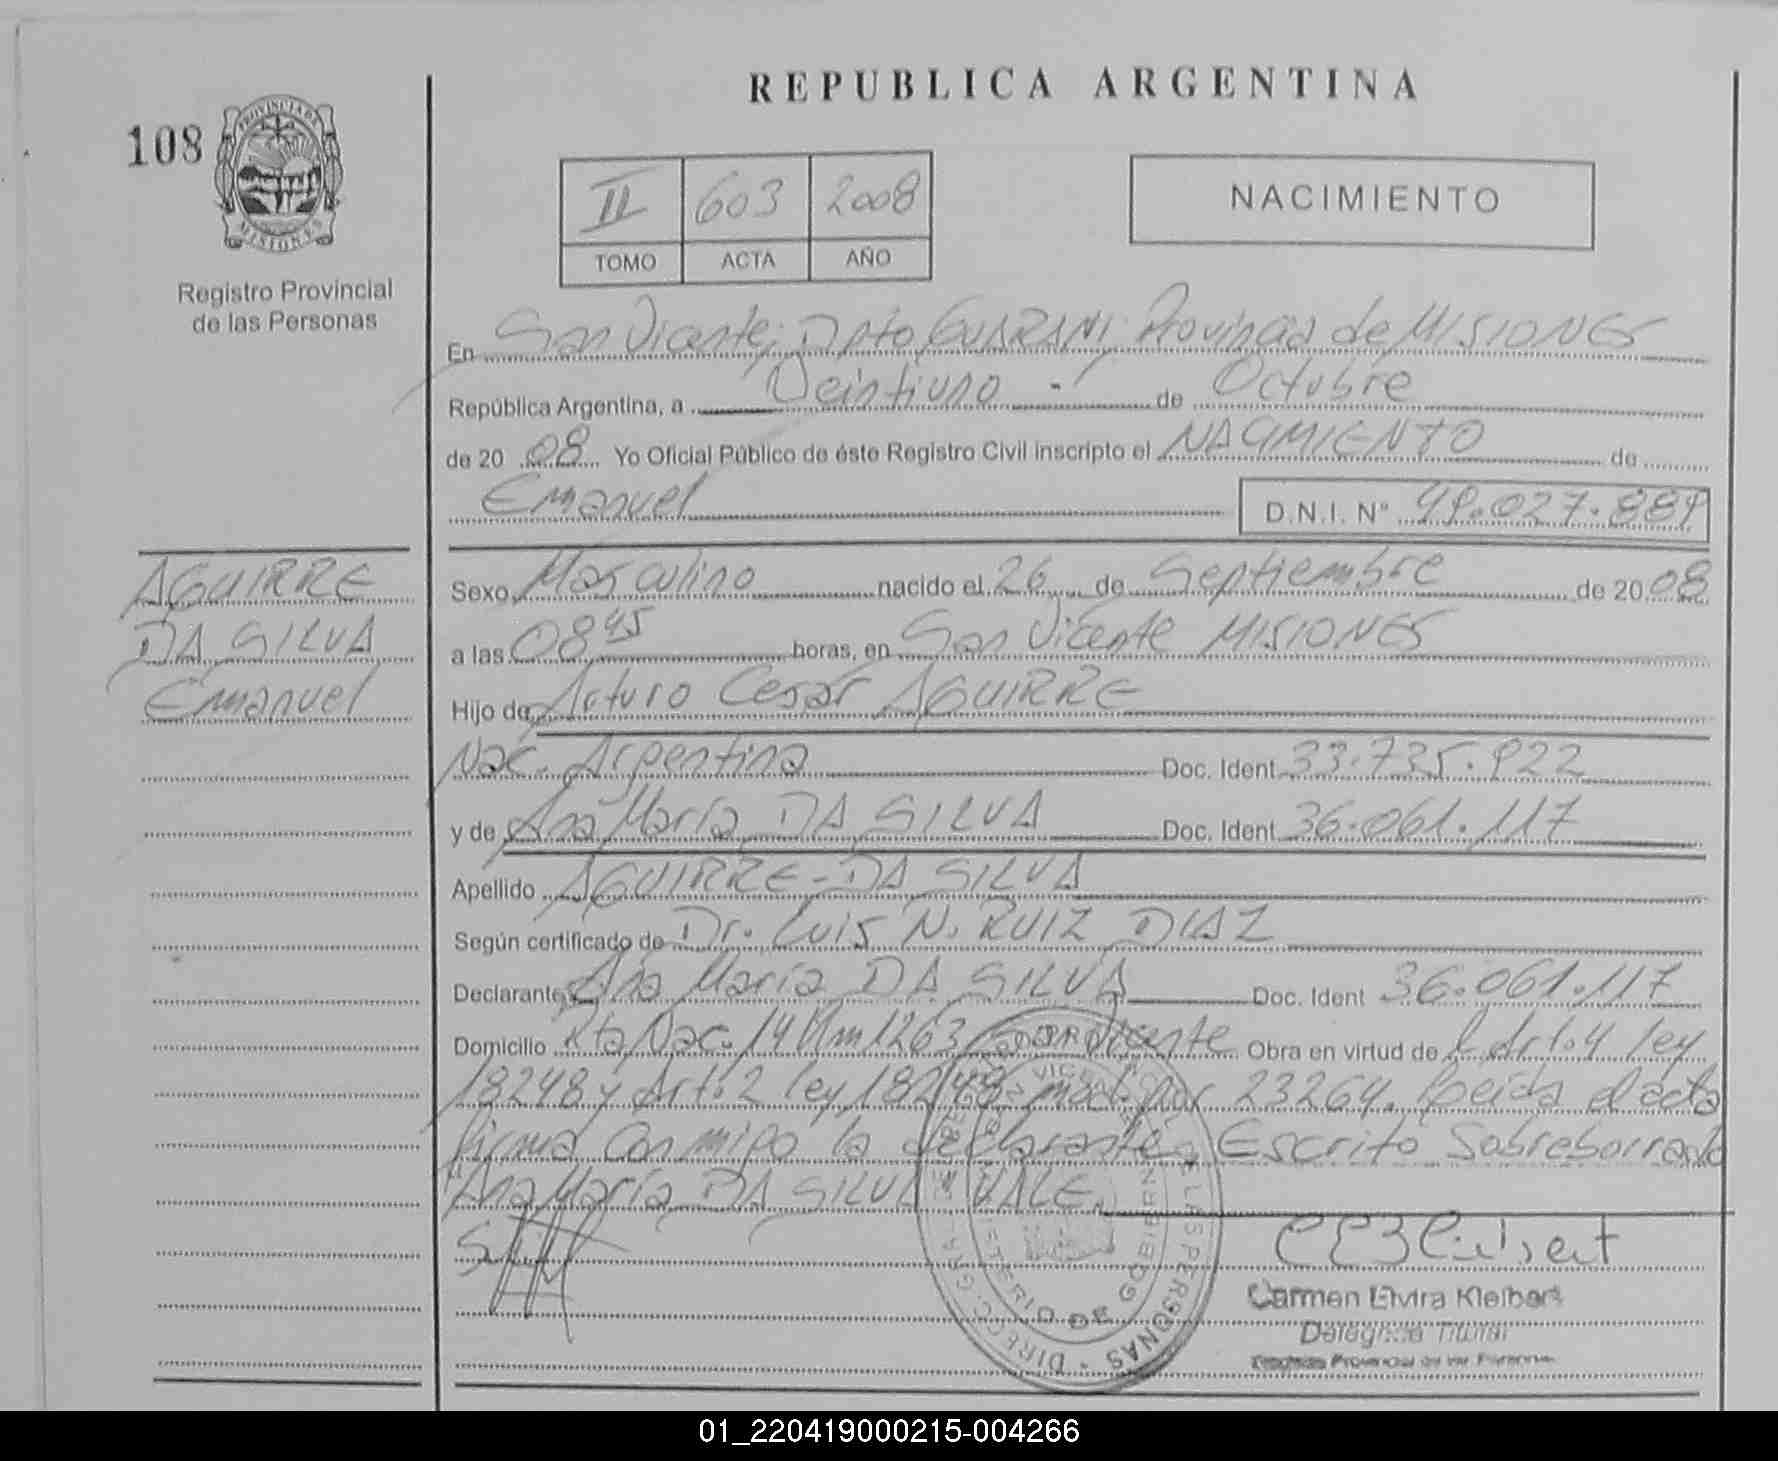 REPUBLICA ARGENTINA
108
PROVINCIA DE
MISIONES
Registro Provincial
de las Personas
II 603 2008
TOMO ACTA AÑO
NACIMIENTO
En San Vicente; Dpto GUARANI; Provincia de MISIONES
República Argentina, a Veintiuno - de Octubre
de 20 08 Yo Oficial Público de éste Registro Civil inscripto el NACIMIENTO de
Emanuel D.N.I. Nº 49.027.889
AGUIRRE
DA SILVA
Emanuel
Sexo Masculino nacido el 26 de Septiembre de 20 08
a las 08 45 horas, en San Vicente MISIONES
Hijo de Arturo Cesar AGUIRRE
Nac. Argentina Doc. Ident 33.735.922
y de Ana María DA SILVA Doc. Ident 36.061.117
Apellido AGUIRRE-DA SILVA
Según certificado de Dr. Luis N. RUIZ DIAZ
Declarante Ana María DA SILVA Doc. Ident 36.061.117
Domicilio Rta Nac. 14 Km 1263 San Vicente Obra en virtud de Art. 4 ley
18248 y Art. 2 ley 18248 mod. por 23264. Leída el acta
firma conmigo la declarante. Escrito Sobreborrado
Ana María DA SILVA VALE.
Carmen Elvira Kleibert
Delegada Titular
Registro Provincial de las Personas
DIREC. GRAL. DE LAS PERSONAS
MINISTERIO DE GOBIERNO
01_220419000215-004266